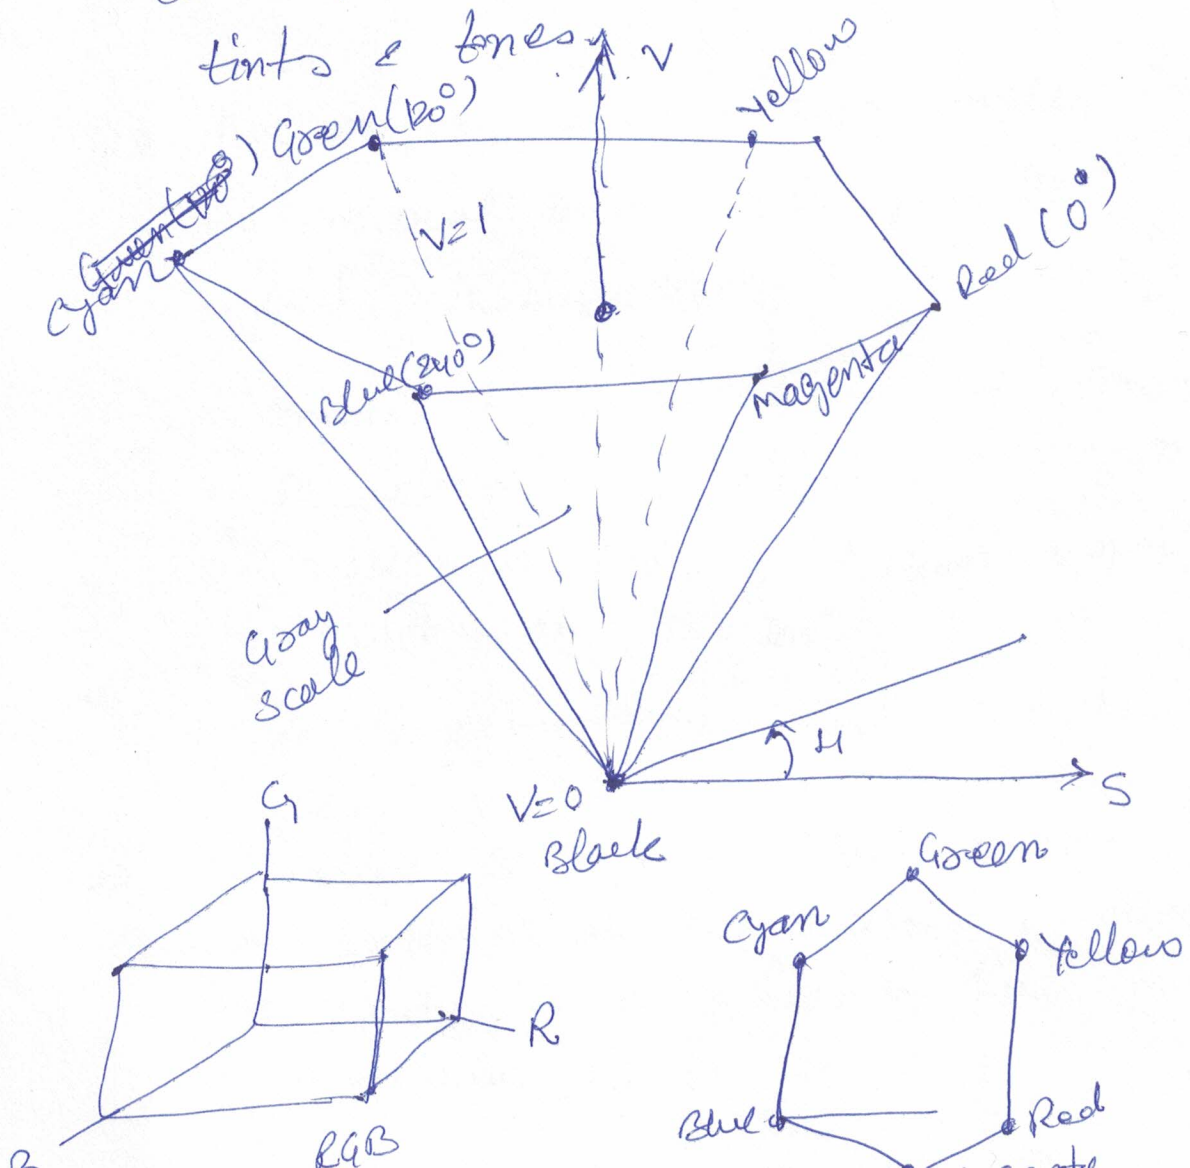 tints & tones.
V
Yellow
Green(120°)
Green(120°)
Cyan
V=1
Red (0°)
Blue(240°)
Magenta
Gray
scale
H
S
V=0
Black
G
R
B
RGB
Green
Cyan
Yellow
Blue
Red